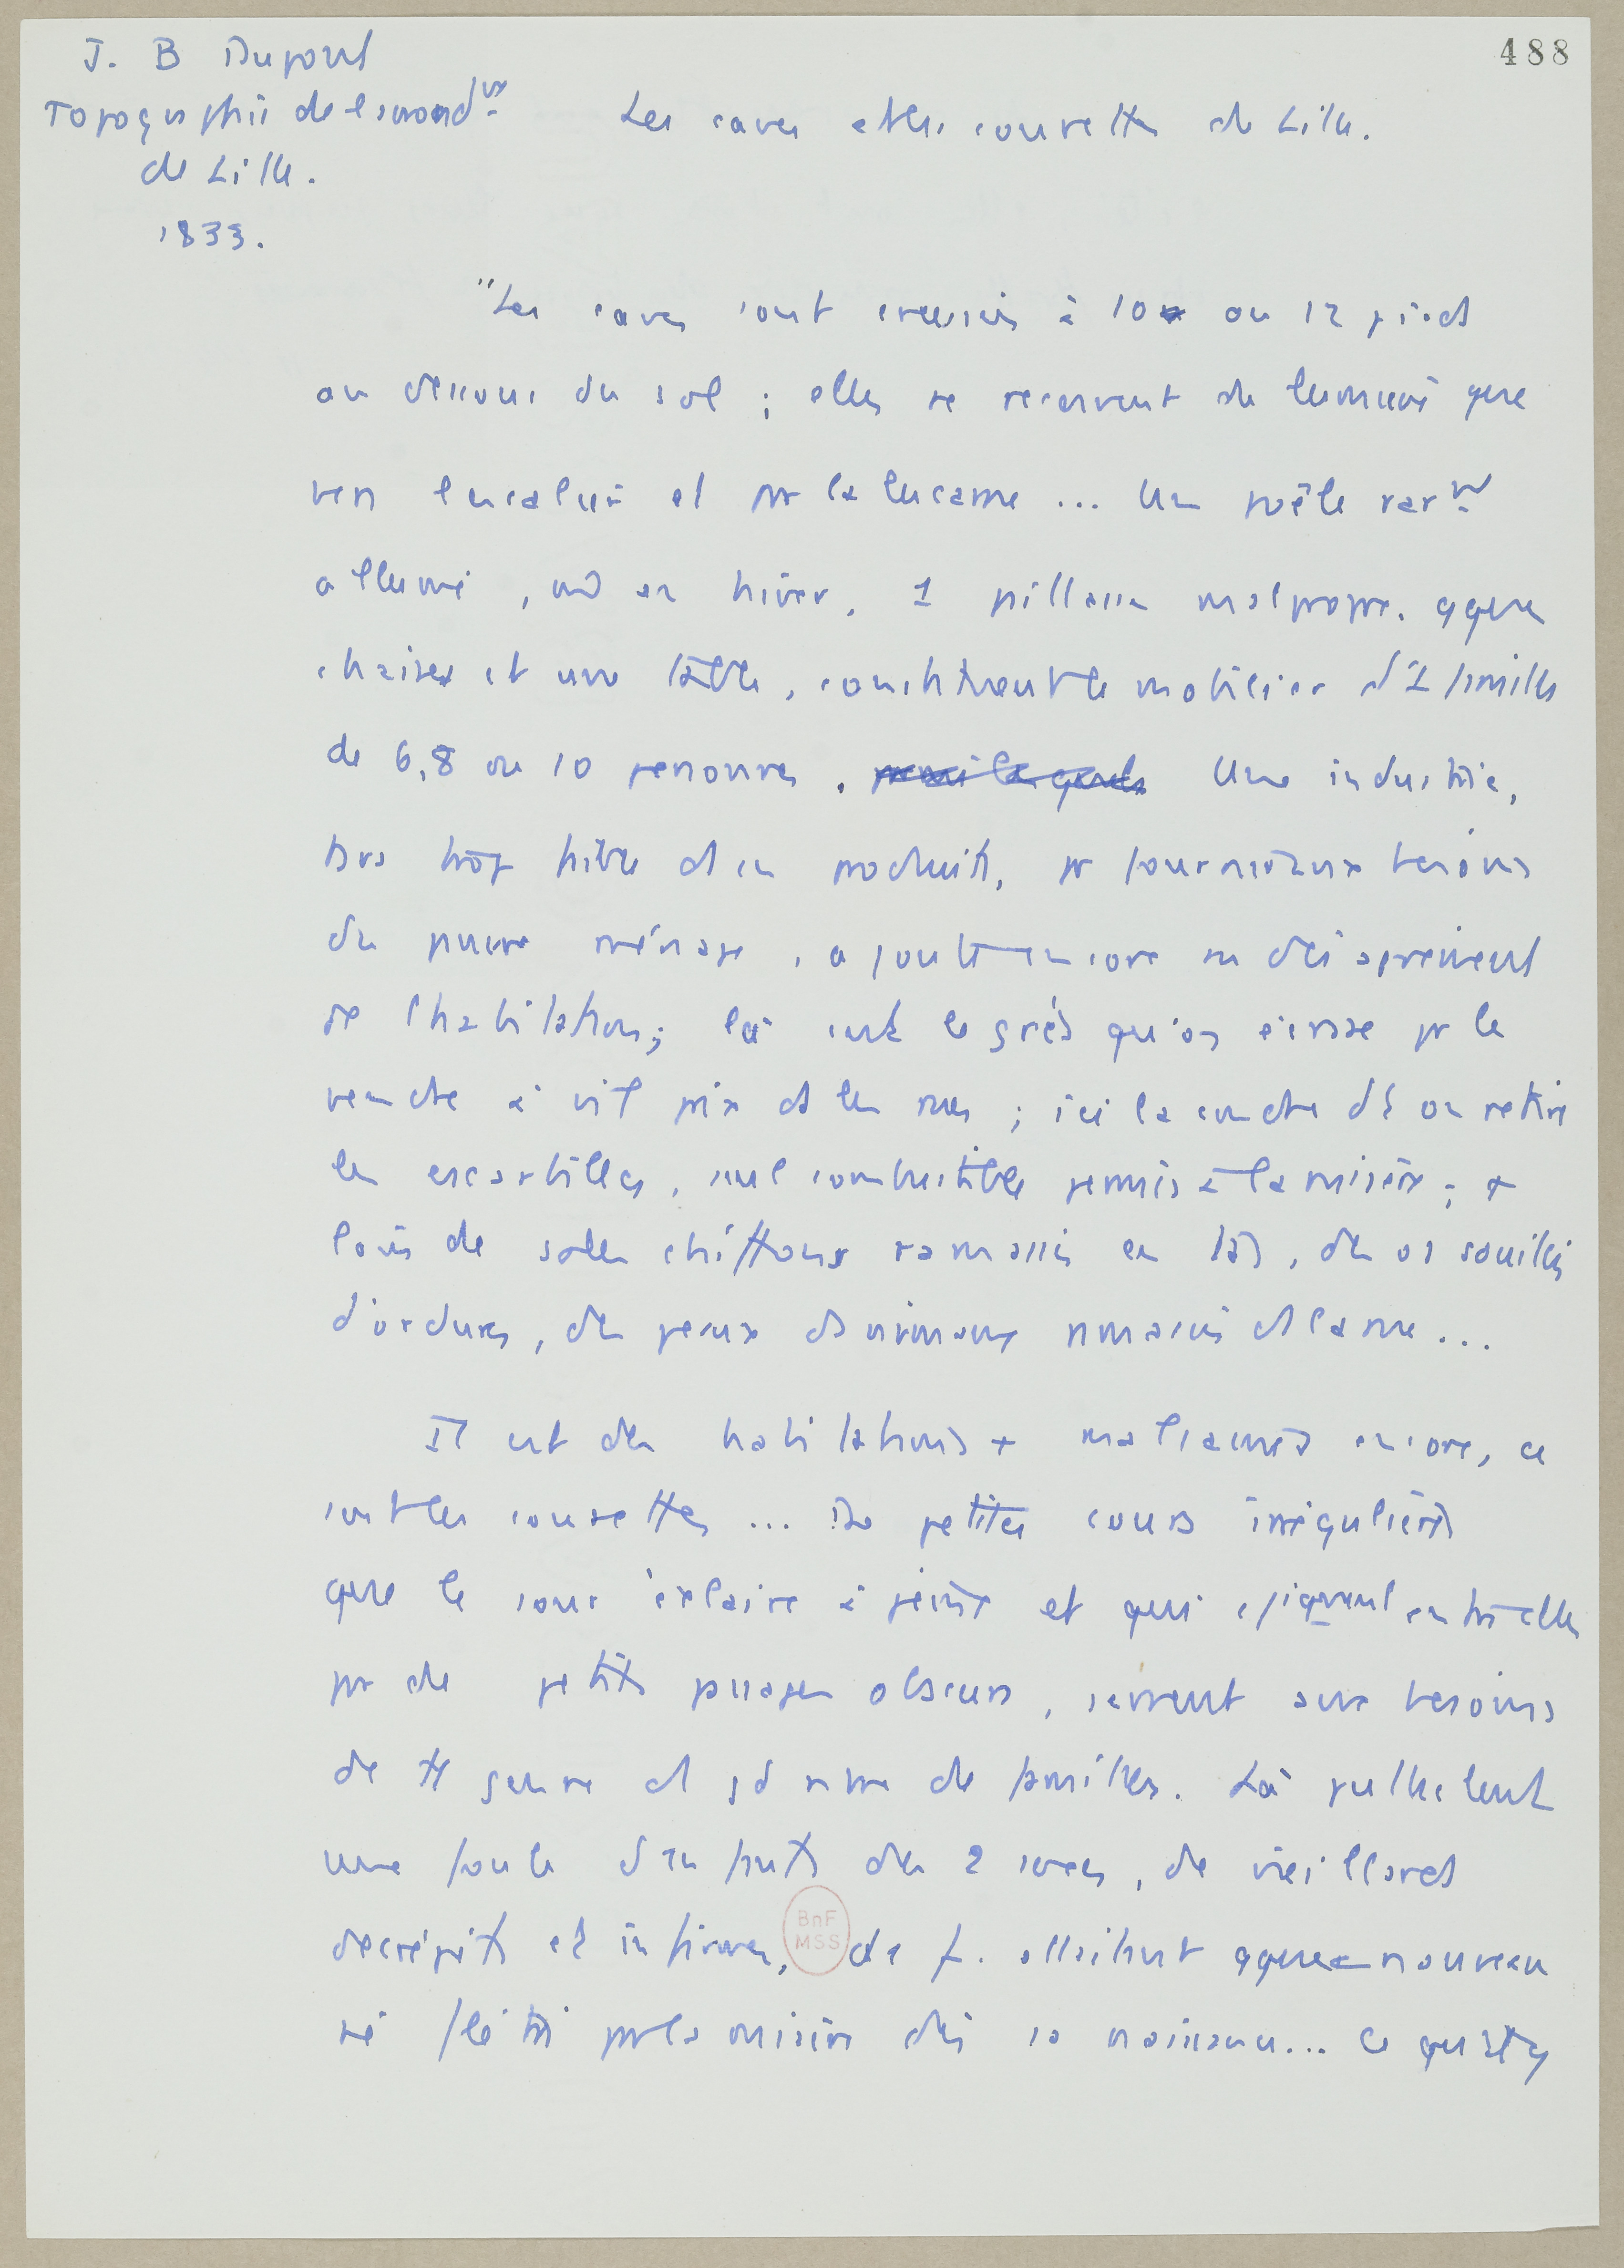 488
J. B Dupont
Topographie de l'arrond<sup>nt</sup>
de Lille.
1833.
Les caves et les courettes de Lille.
"Les caves sont creusées à 10 ou 12 pieds
au dessous du sol ; elles ne reçoivent de lumière que
par l'escalier et par la lucarne ... Un poêle rar<sup>nt</sup>
allumé, m̂ en hiver, 1 paillasse malpropre, qques
chaises et une table, constituent le mobilier d'1 famille
de 6, 8 ou 10 personnes. Une industrie,
trop faible ds ses produits, pr fournir aux besoins
du pauvre ménage, ajoute encore au désagrément
de l'habitation ; là c'est le grès qu'on écrase pr le
vendre à vil prix ds les rues ; ici la cendre dt on retire
les escarbilles, seul combustible permis à la misère ; +
loin de sales chiffons ramassés en tas, des os souillés
d'ordures, des peaux d'animaux ramassées ds la rue ...
Il est des habitations + malsaines encore, ce
sont les courettes ... De petites cours irrégulières
que le jour éclaire à peine et qui communiquent entre elles
par de petits passages obscurs, servent aux besoins
de tt genre d'1 gd nbre de familles. Là pullulent
une foule d'enfants des 2 sexes, de vieillards
décrépits et infirmes, de f. allaitant qque nouveau
né flétri par la misère dès sa naissance ... Ce qu'il y
BnF
MSS